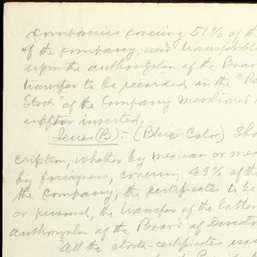 companies covering 51% of the
of the company, and transferable
upon the authorization of the Board
transfer to be recorded in the "Re
Stock of the Company mentioned
inserted.
Series (B):- (Blue Color) Sha
cription, whether by mexican or mex
by foreigners, covering 49% of the
the company; the certificates to be
or personal, the transfer of the latter
authorization of the Board of Director
All the stock-certificates issu